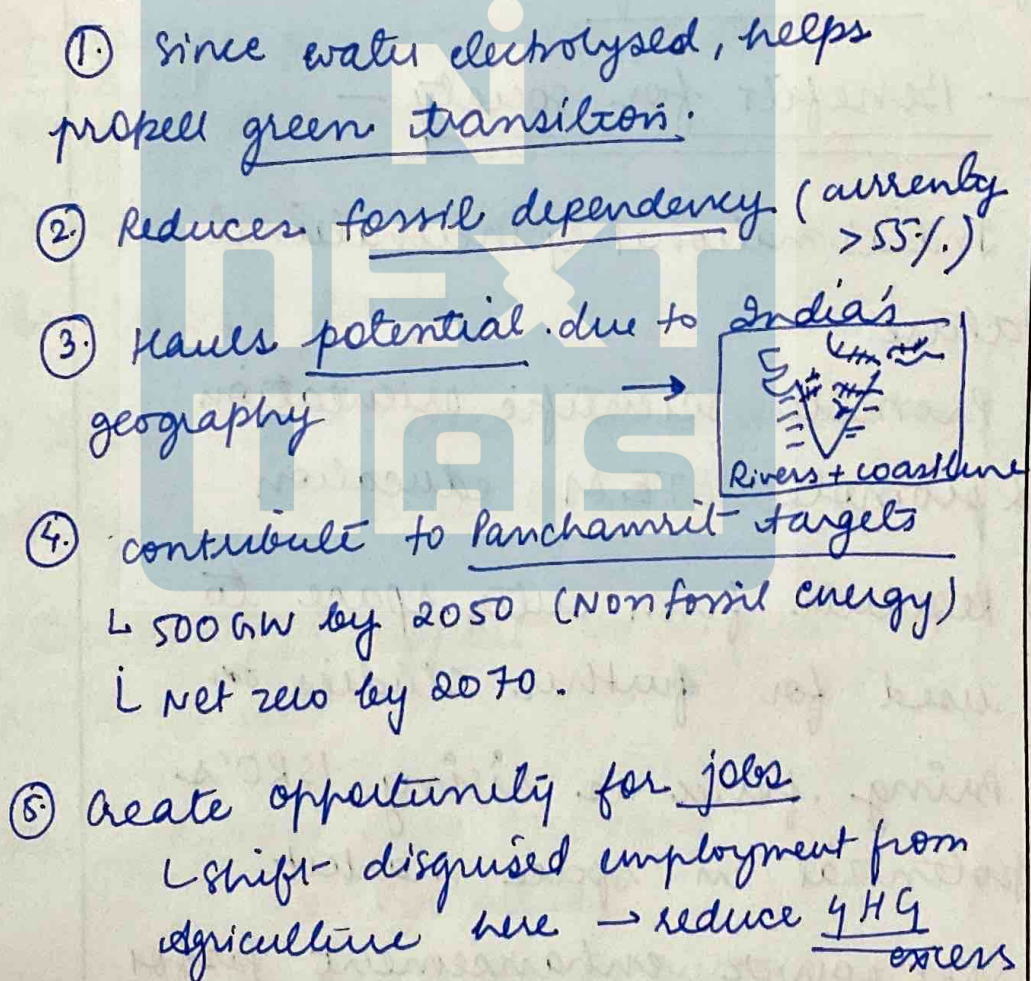 ① Since water electrolysed, helps
propell green transition.
② Reduces fossil dependency (currently
>55%.)
③ Hauls potential due to India's
geography →
Rivers + coastline
④ contribute to Panchamrit targets
↳ 500 GW by 2050 (Non fossil energy)
↳ Net zero by 2070.
⑤ Create opportunity for jobs
↳ Shift disguised employment from
Agriculture here → reduce GHG
excess
NEXT
IAS